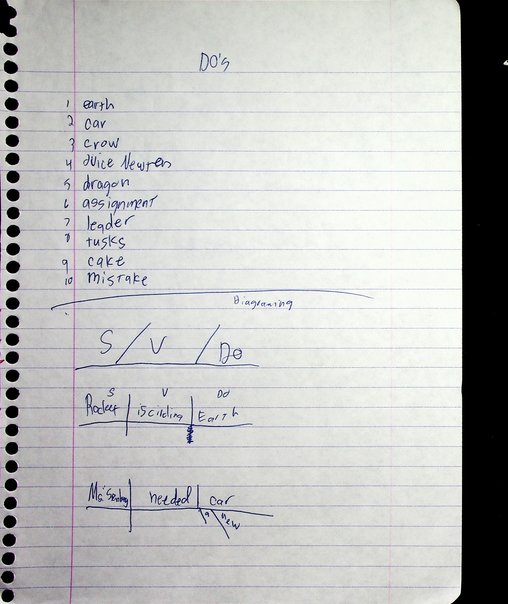 DO's
1 earth
2 car
3 crow
4 Juice Newton
5 dragon
6 assignment
7 leader
8 tusks
9 cake
10 mistake
Diagraming
S / V / Do
S V DO
Rocket Earth
needed car
a new